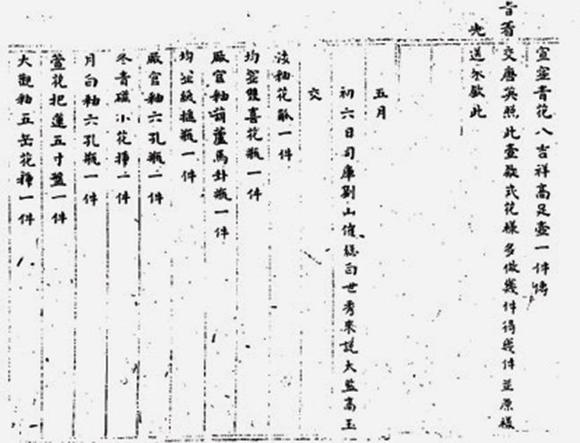 宣窰青花八吉祥高足壺一件傳
旨着交唐英照此壺款式花樣多做幾件得幾件並原樣
先送來欽此
五月
初六日司庫劉山催總白世秀來說太監高玉
交
釉花觚一件
均窰雙喜花瓶一件
厰官釉葫蘆馬掛瓶一件
均窰紙槌瓶一件
厰官釉六孔瓶一件
冬青磁小花插一件
月白釉六孔瓶一件
萱花把蓮五寸盤一件
大觀釉五岳花插一件